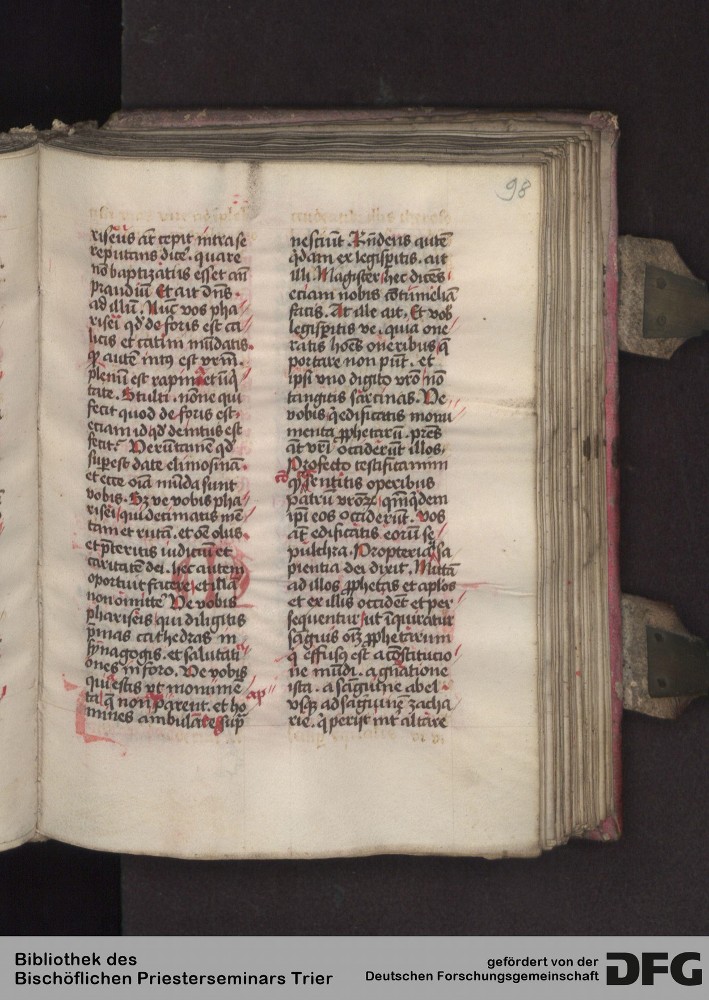 98
riseus aūt cepit intra se
reputans dice͛. quare
nō baptizatus esset añ
prandiū Et ait dn̄s
ad illū. Nūc vos pha
risei qd̛ de foris est ca
licis et catini mūdatis.
qd̛ autē intꝰ est vr̄m̄.
plenū est rapina et iniq̄
tate. Stulti. nōne qui
fecit quod de foris est.
eciam id qd̛ deintus est
fecit? Verūtamē qd̛
suꝑest date elimosinā.
et ecce oīa mūda sunt
vobis. Sꝫ ve vobis pha
risei qui decimatis mē
tam et rutā. et oē olus.
et p̄teritis iudiciū et
caritatē dei. hec autem
oportuit facere et illa
non omitte͛ Ve vobis
phariseis qui diligitis
p̄mas cathedras in
synagogis. et salutati
ones in foro. Ve vobis
qui estis vt monume
ta q̄ non ꝑarent. et ho
mines ambulātes sup̄
ap
nesciūt. Rn̄dens autē
qͥdam ex legisꝑitis. ait
illi. Magister hec dices
eciam nobis cōtumeliā
facis. At ille ait. Et vob̛
legisꝑitis ve. quia one
ratis hoēs oneribus q̄
portare non pn̄t. et
ipsi vno digito vr̄o nō
tangitis sarcinas. Ve
vobis q̄ edificatis monu
menta ꝓphetarū. pr̄es
aūt vr̄i occiderūt illos.
Profecto testificamini
qd̛ sentitis operibus
patrū vr̄oꝝ. qm̄ qͥdem
ip̄i eos occiderūt. vos
aūt edificatis eorū se
pulchra. Propterea sa
piencia dei dixit. Mittā
ad illos ꝓphetas et aplōs
et ex illis occidēt et per
sequentur ut inquiratur
sāguis oīm ꝓphetarum
qͥ effusꝰ est a cōstitucio
ne mūdi. a gn̄atione
ista. a sāguine abel
vsqꝫ ad sāguinē zacha
rie. qͥ perijt int̛ altare
Bibliothek des
Bischöflichen Priesterseminars Trier
gefördert von der
Deutschen Forschungsgemeinschaft
DFG